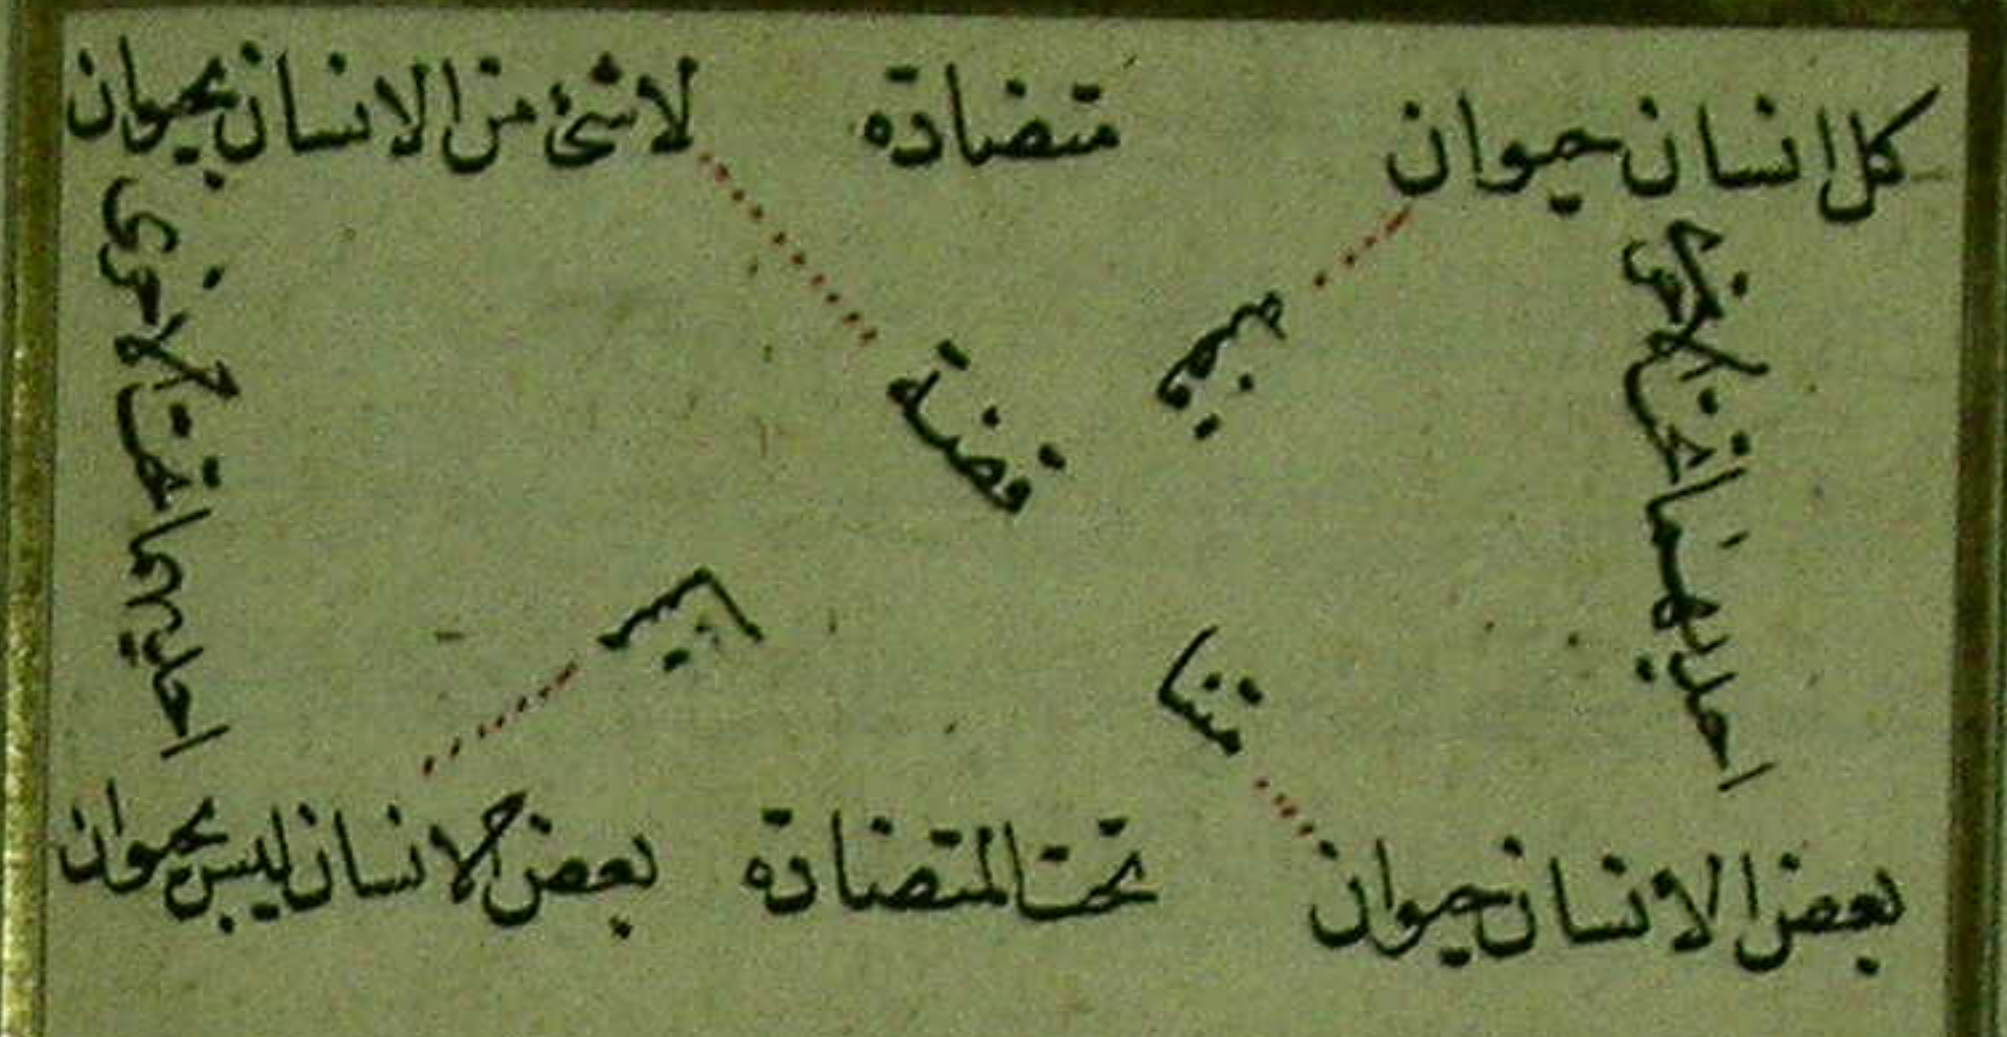 كل انسان حيوان متضادة لا شئ من الانسان بحيوان
احديهما تحت الاخرى
احديهما تحت الاخرى
متنا قضة
بعض الانسان حيوان تحت المتضادة بعض الانسان ليس بحيوان